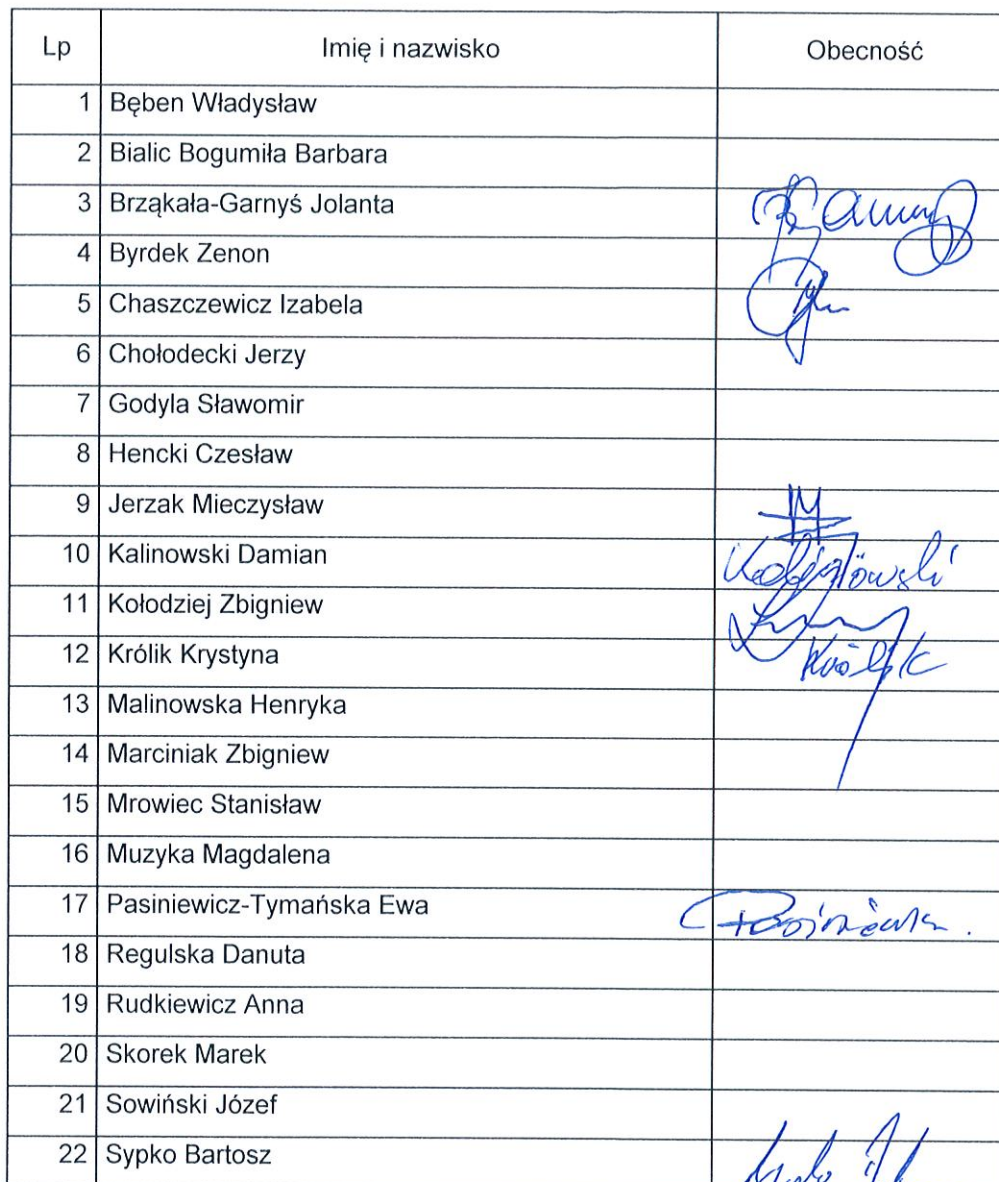 Lp Imię i nazwisko Obecność
1 Bęben Władysław
2 Bialic Bogumiła Barbara
3 Brząkała-Garnyś Jolanta
4 Byrdek Zenon
5 Chaszczewicz Izabela
6 Chołodecki Jerzy
7 Godyla Sławomir
8 Hencki Czesław
9 Jerzak Mieczysław
10 Kalinowski Damian
11 Kołodziej Zbigniew
12 Królik Krystyna Królik
13 Malinowska Henryka
14 Marciniak Zbigniew
15 Mrowiec Stanisław
16 Muzyka Magdalena
17 Pasiniewicz-Tymańska Ewa
18 Regulska Danuta
19 Rudkiewicz Anna
20 Skorek Marek
21 Sowiński Józef
22 Sypko Bartosz